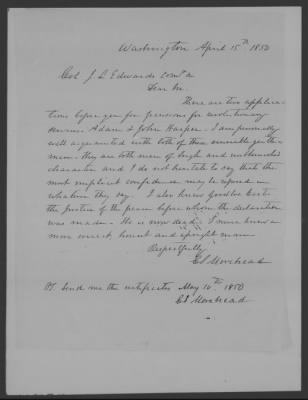 Washington April 15th 1850
Col J. L. Edwards Com'r
Dear Sir.
There are two applica-
tions before you for pensions for revolutionary
services Adam & John Harper. I am personally
well acquainted with both of these venerable gentle-
men; they are both men of high and unblemished
character and I do not hesitate to say that the
most implicit confidence may be reposed in
whatever they say. I also knew
the justice of the peace before whom the declaration
was made. He is now dead. I never knew a
more honest and upright man
Respectfully
C S Morehead
PS. Send me the certificates May 10th 1850
C S Morehead